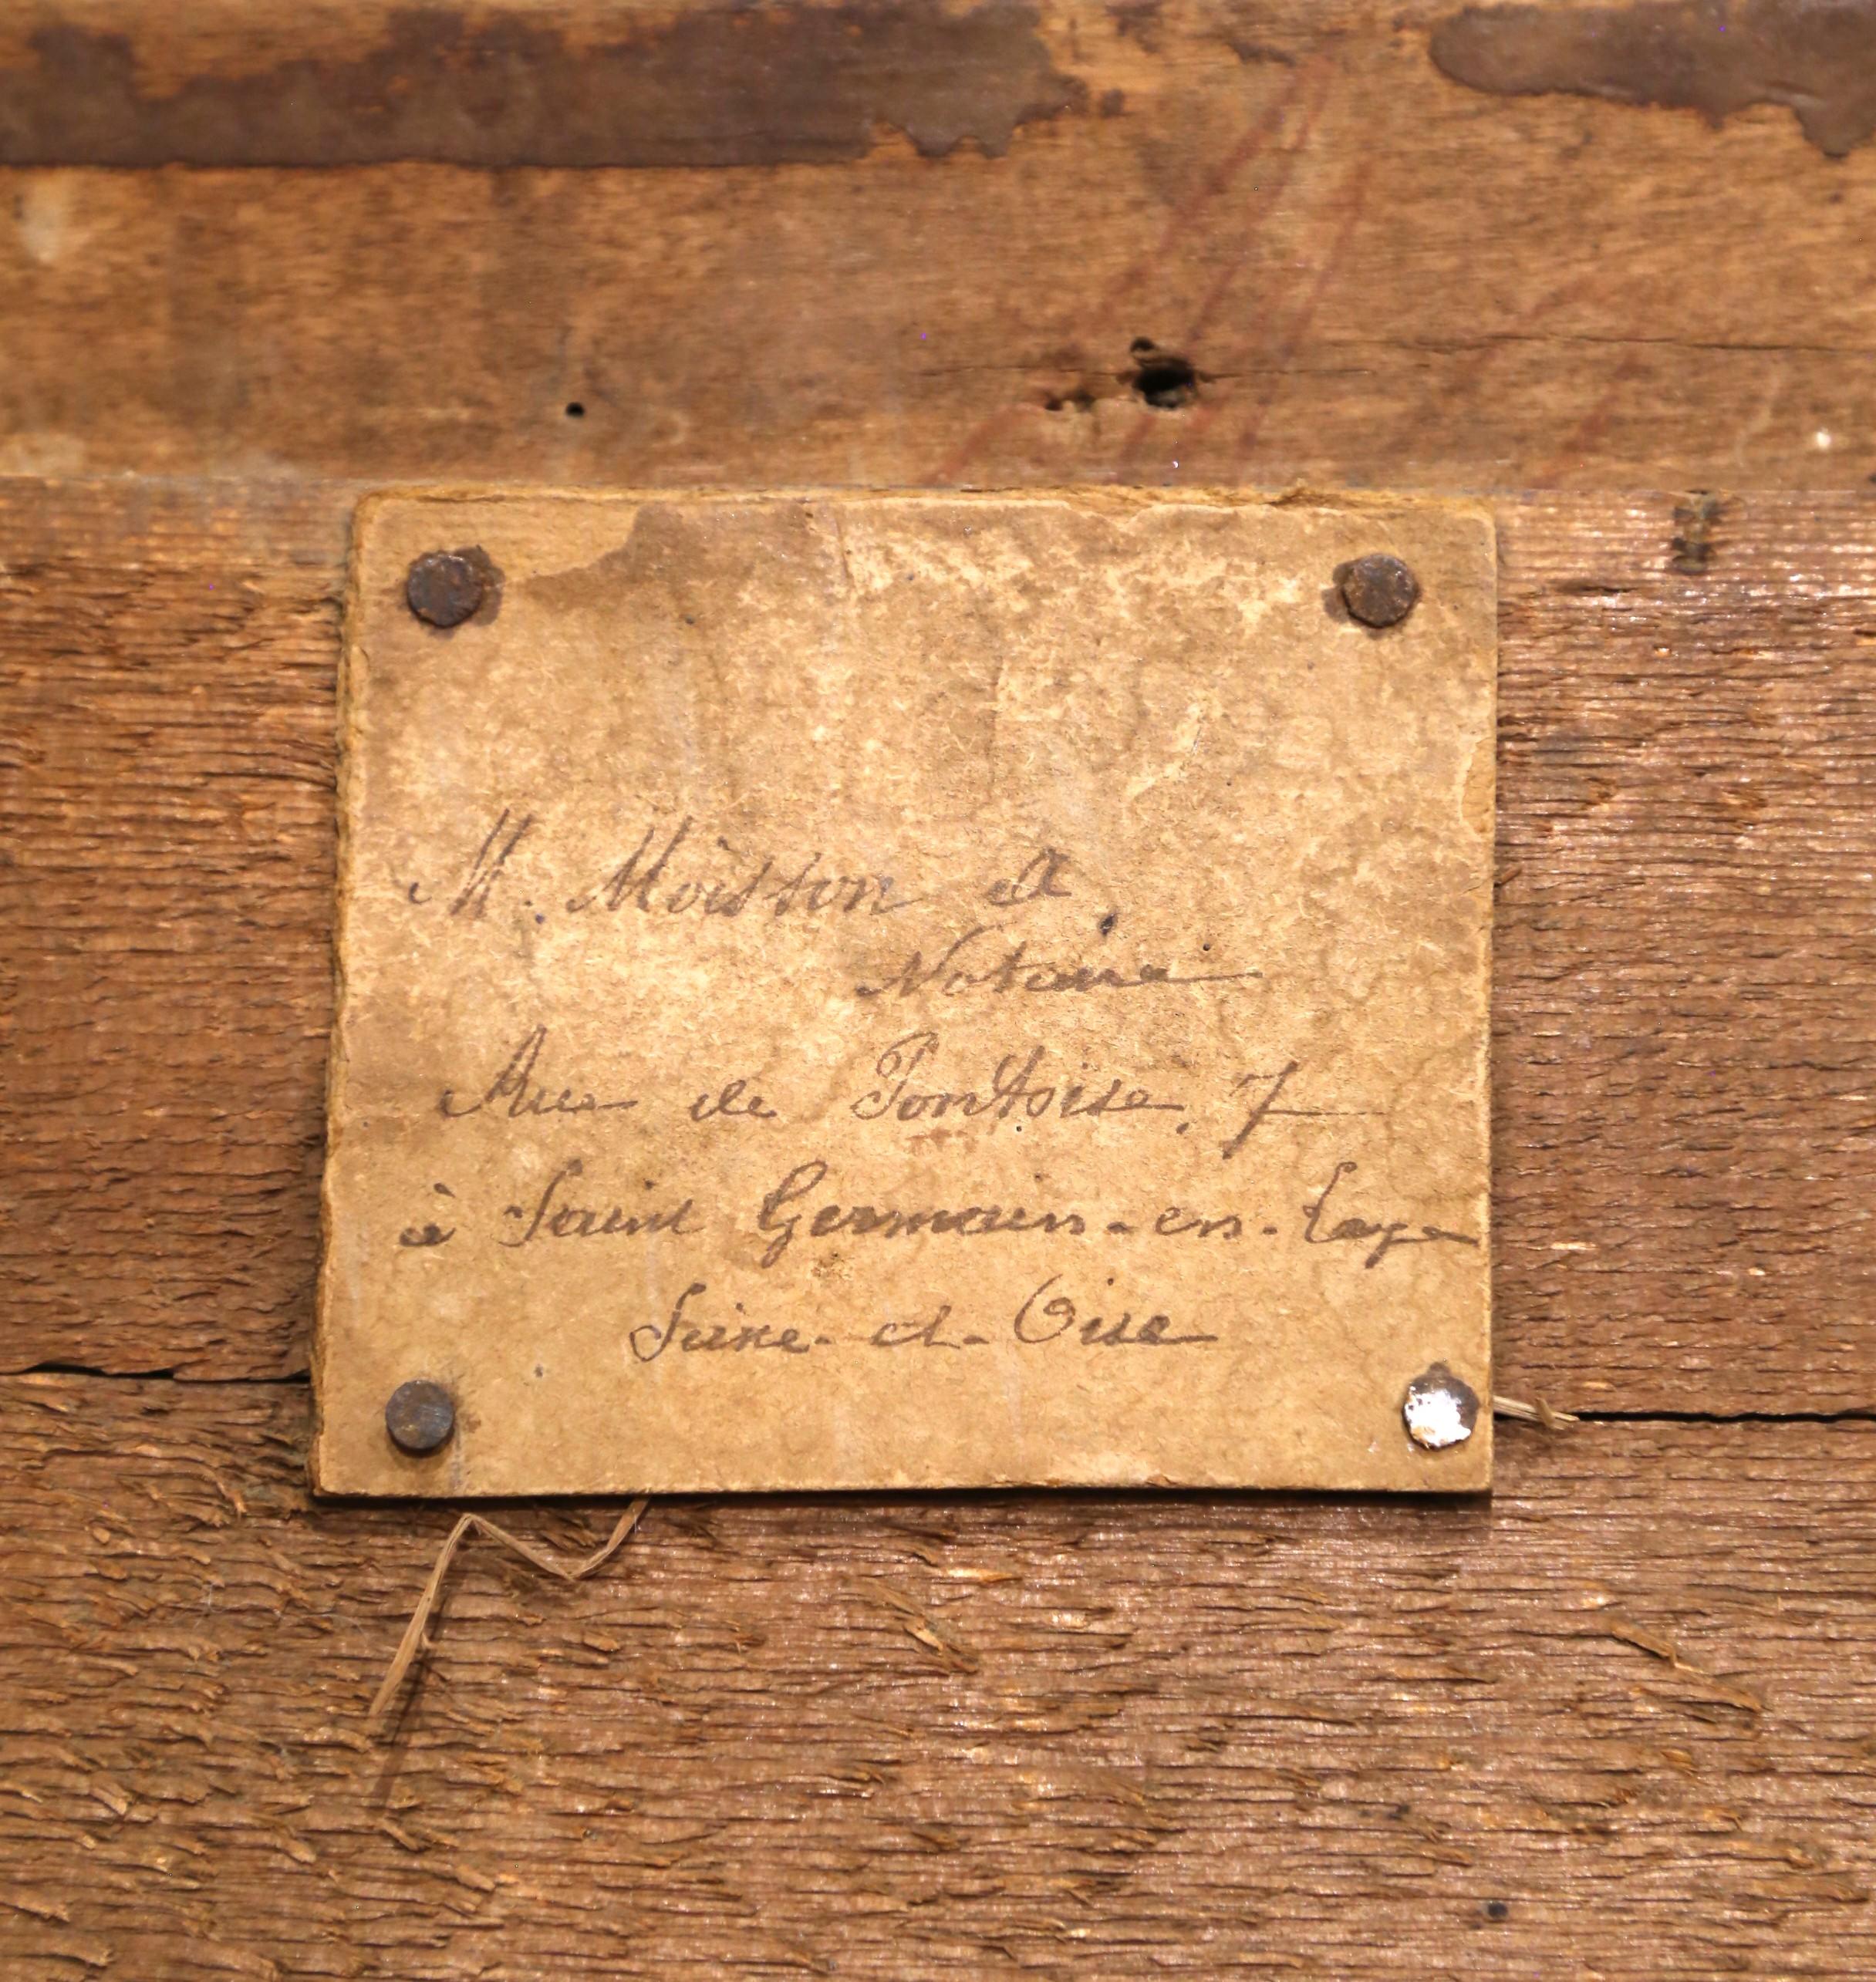 M. Moisson A.
Notaire
Rue de Pontoise, 7
à Saint Germain-en-Laye
Seine-et-Oise